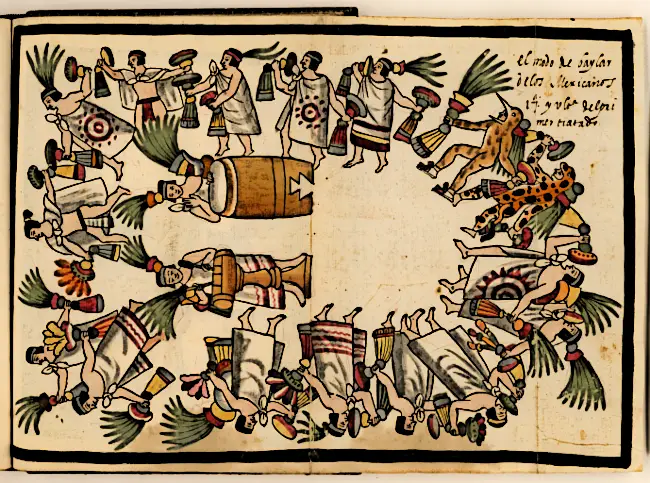 el modo de baylar
delos Mexicanos
y vltº delpri
mer tratado